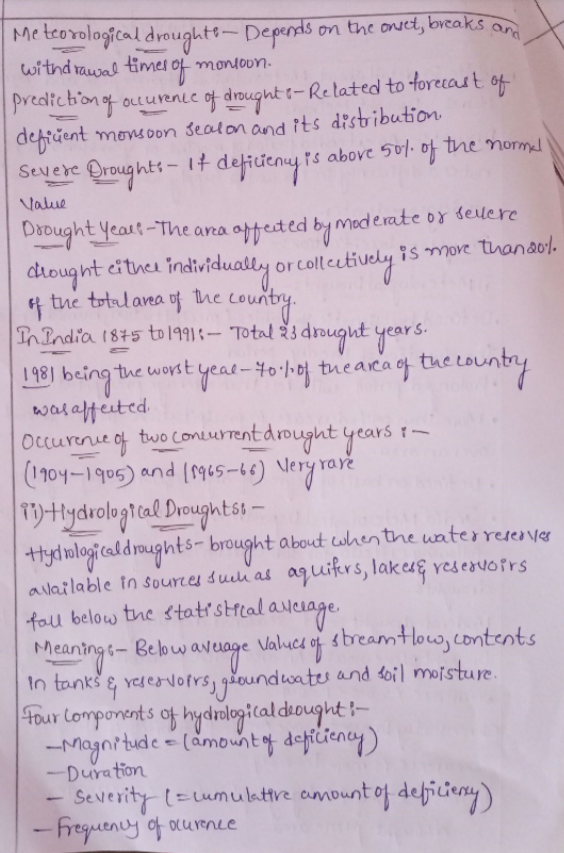 Meteorological droughts:- Depends on the onset, breaks and
withdrawal times of monsoon.
prediction of occurence of droughts:- Related to forecast of
deficient monsoon season and its distribution.
Severe Droughts:- If deficieny is above 50% of the normal
Value
Drought Year:- The area affected by moderate or severe
drought either individually or collectively is more than 20%
of the total area of the country.
In India 1875 to 1991:- Total 23 drought years.
1981 being the worst year - 70% of the area of the country
was affected.
Occurence of two concurrent drought years :-
(1904-1905) and (1965-66) Very rare
ii) Hydrological Droughts:-
Hydrological droughts - brought about when the water reserves
available in sources such as aquifers, lakes & reservoirs
fall below the statistical average.
Meaning:- Below average values of stream flow, contents
in tanks & reservoirs, groundwater and soil moisture.
Four Components of hydrological drought :-
- Magnitude = (amount of deficiency)
- Duration
- Severity (= cumulative amount of deficiency)
- Frequency of ocurence